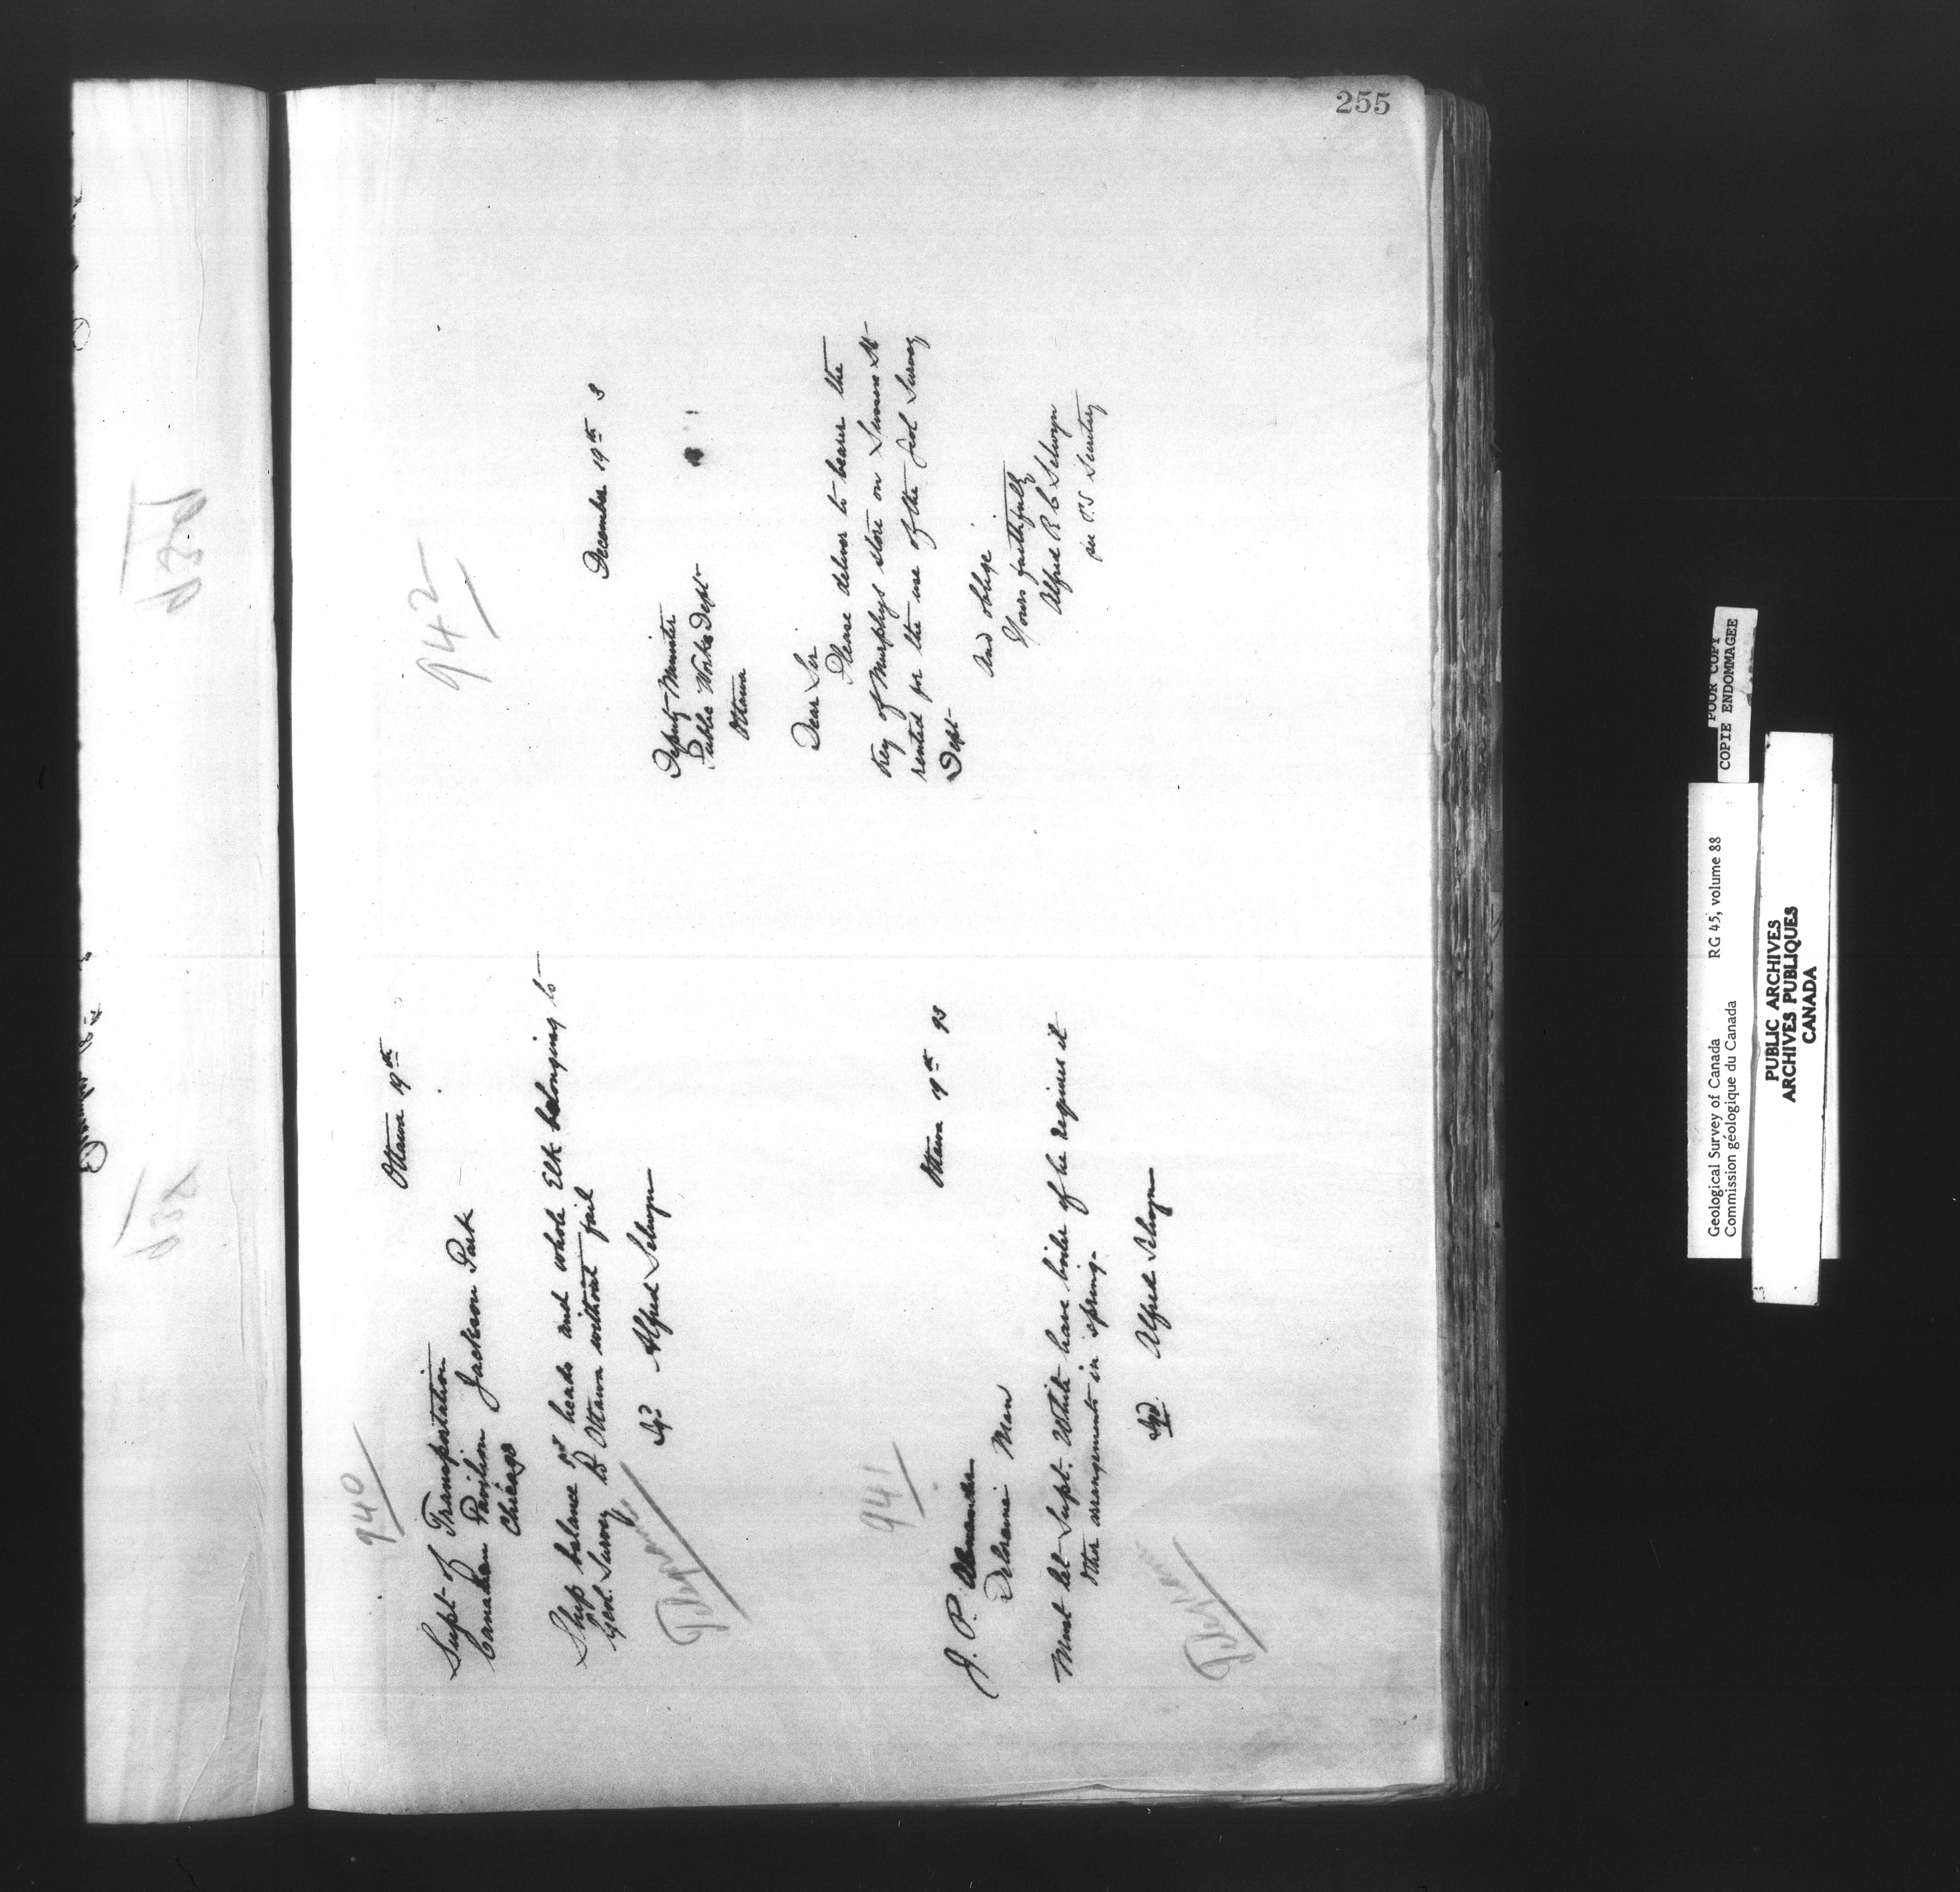 255
940
Ottawa 19th
Supt- of Transportation
Canadian Pavilion Jackson Park
Chicago
Ship balance of heads and whole Elk belonging to
Geol. Survey to Ottawa without fail
Sgd Alfred Selwyn
Telegram
941
Ottawa 19th 93
J. P. Alexander
Deloraine Man
Must let Supt. White have boiler if he requires it
Other arrangements in spring.
Sgd. Alfred Selwyn
Telegram
942
December 19th 3
Deputy Minister
Public Works Dept
Ottawa
Dear Sir
Please deliver to bearer the
key of Murphys store on Sussex St
rented for the use of the Geol Survey
Dept
And oblige
Yours faithfully
Alfred R C Selwyn
per Secretary
POOR COPY
COPIE ENDOMMAGEE
Geological Survey of Canada RG 45, volume 88
Commission géologique du Canada
PUBLIC ARCHIVES
ARCHIVES PUBLIQUES
CANADA